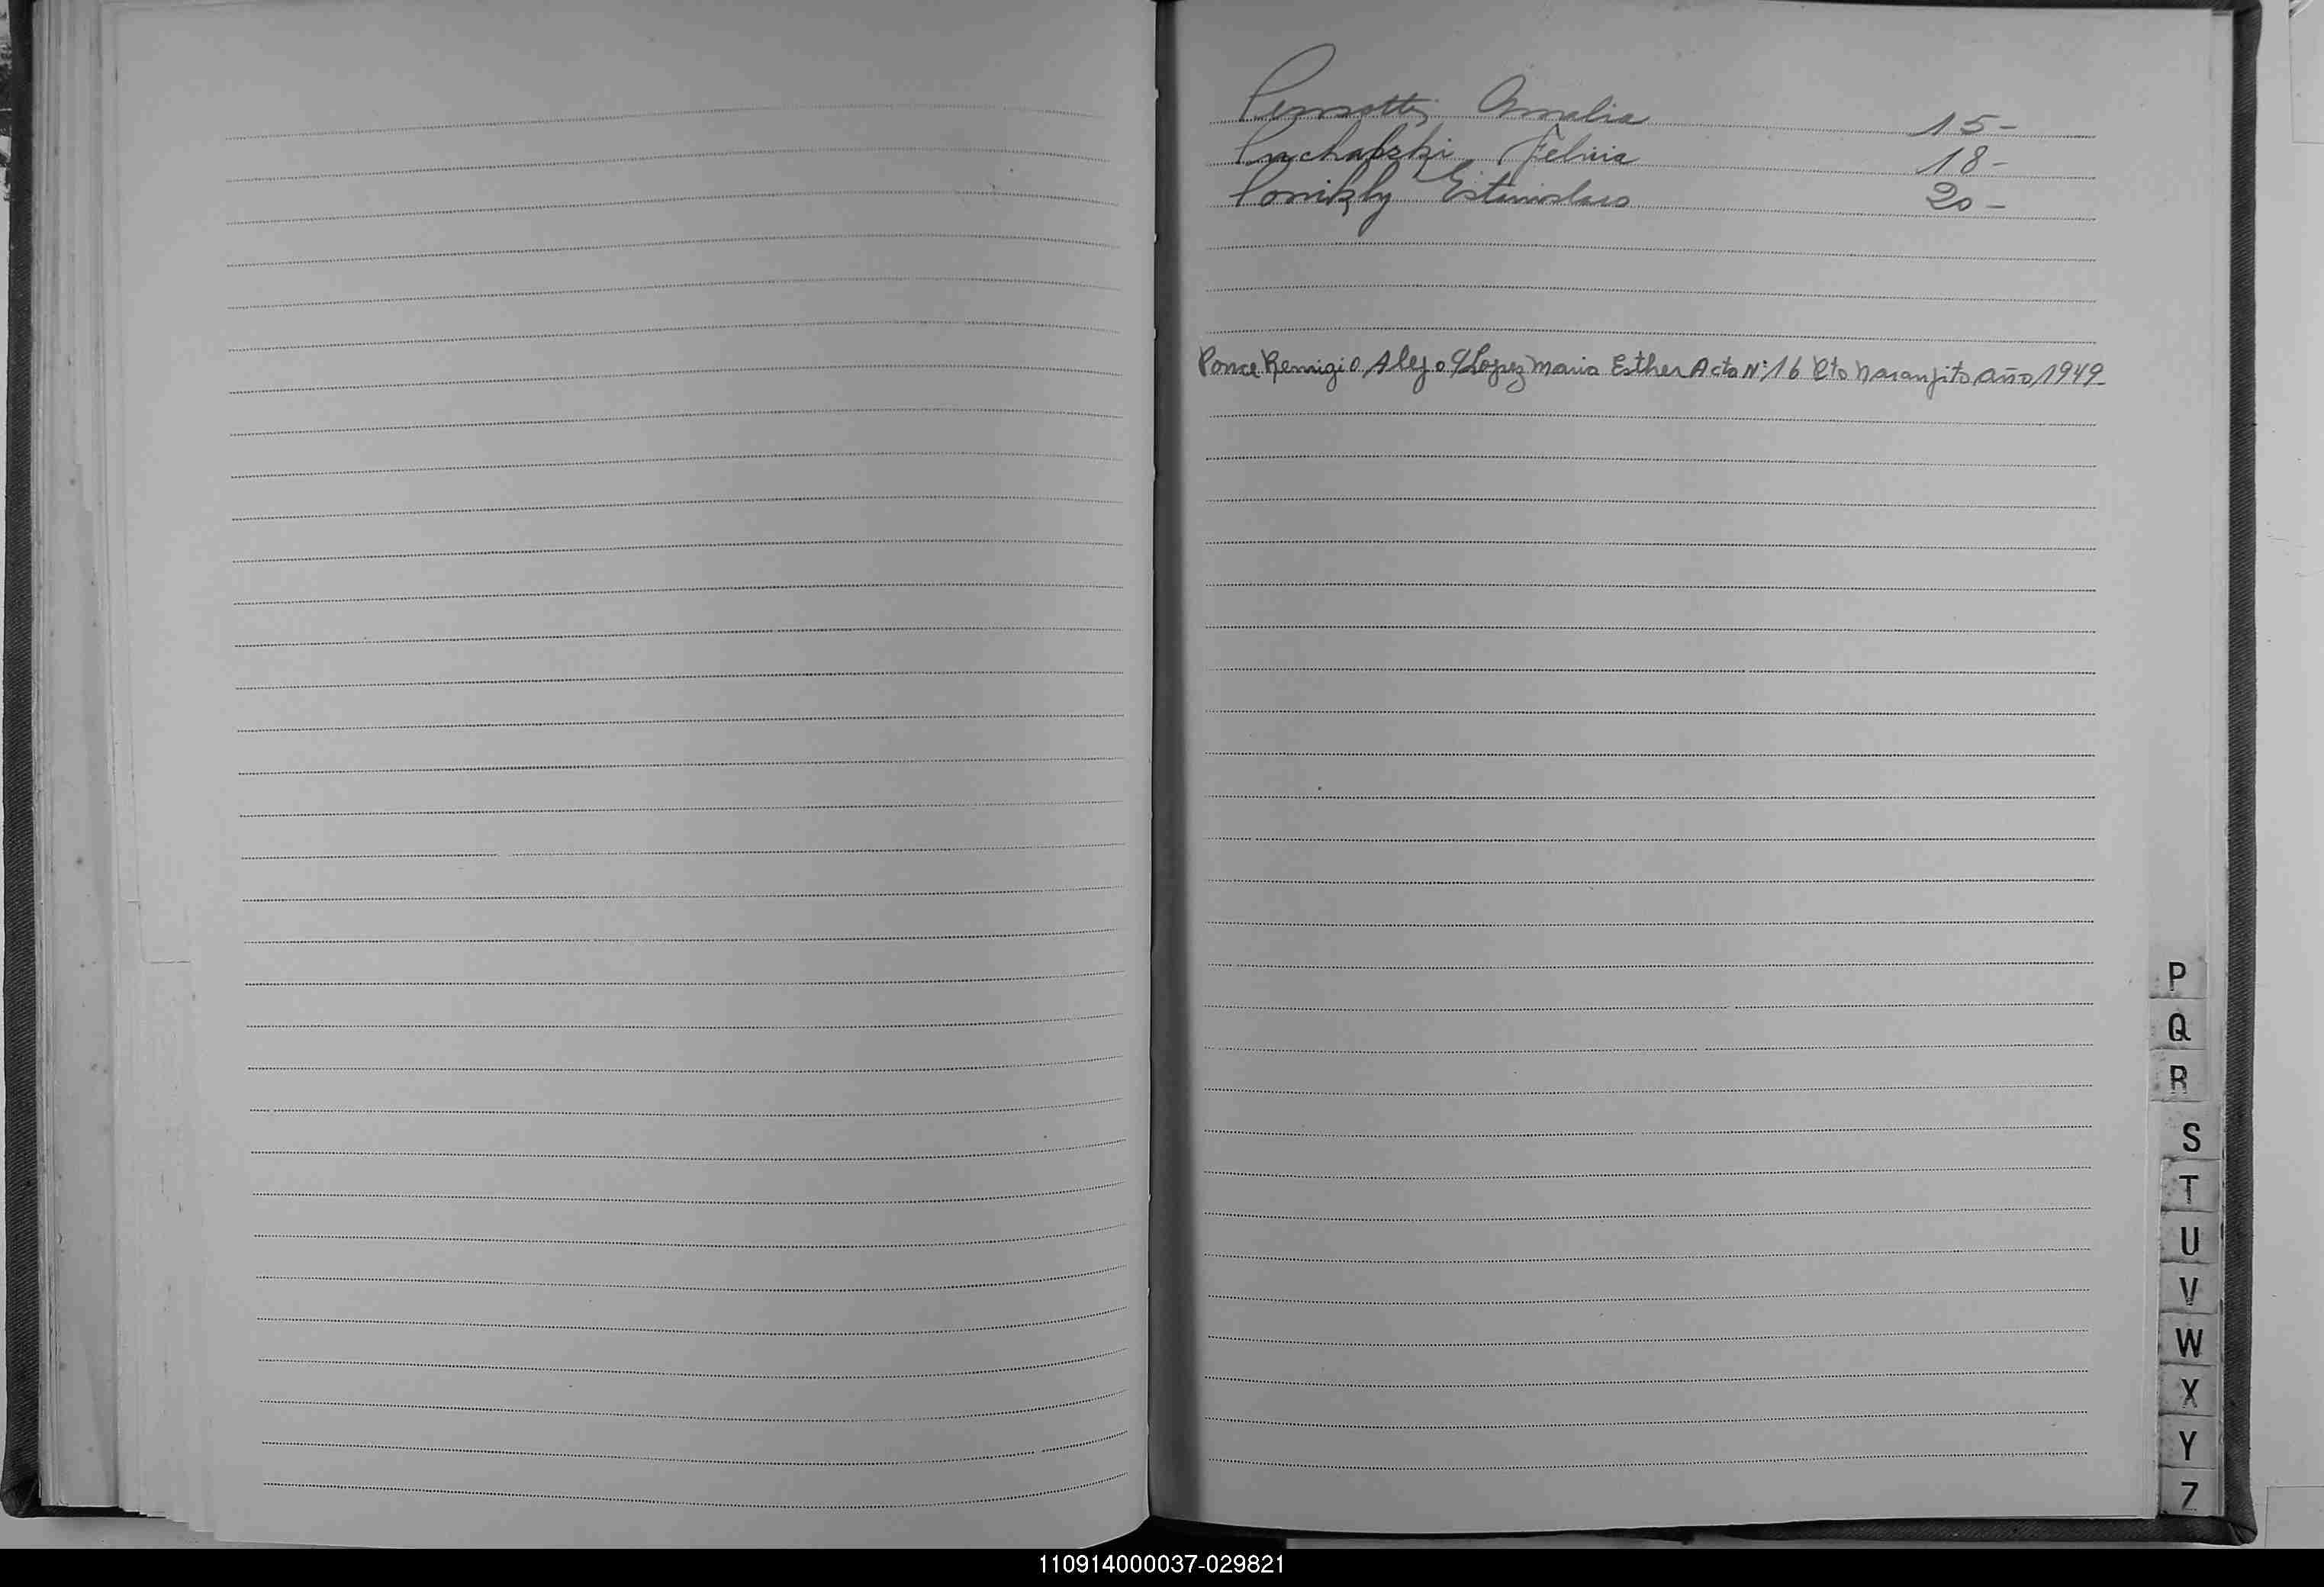 Pensotti, Amalia 15-
Puchalski, Felivia 18-
Ponikly Estanislao 20-
Ponce Remigio Alejo c/ Lopez Maria Esther Acta Nº 16 Cto Naranjito año 1949-
P
Q
R
S
T
U
V
W
X
Y
Z
110914000037-029821